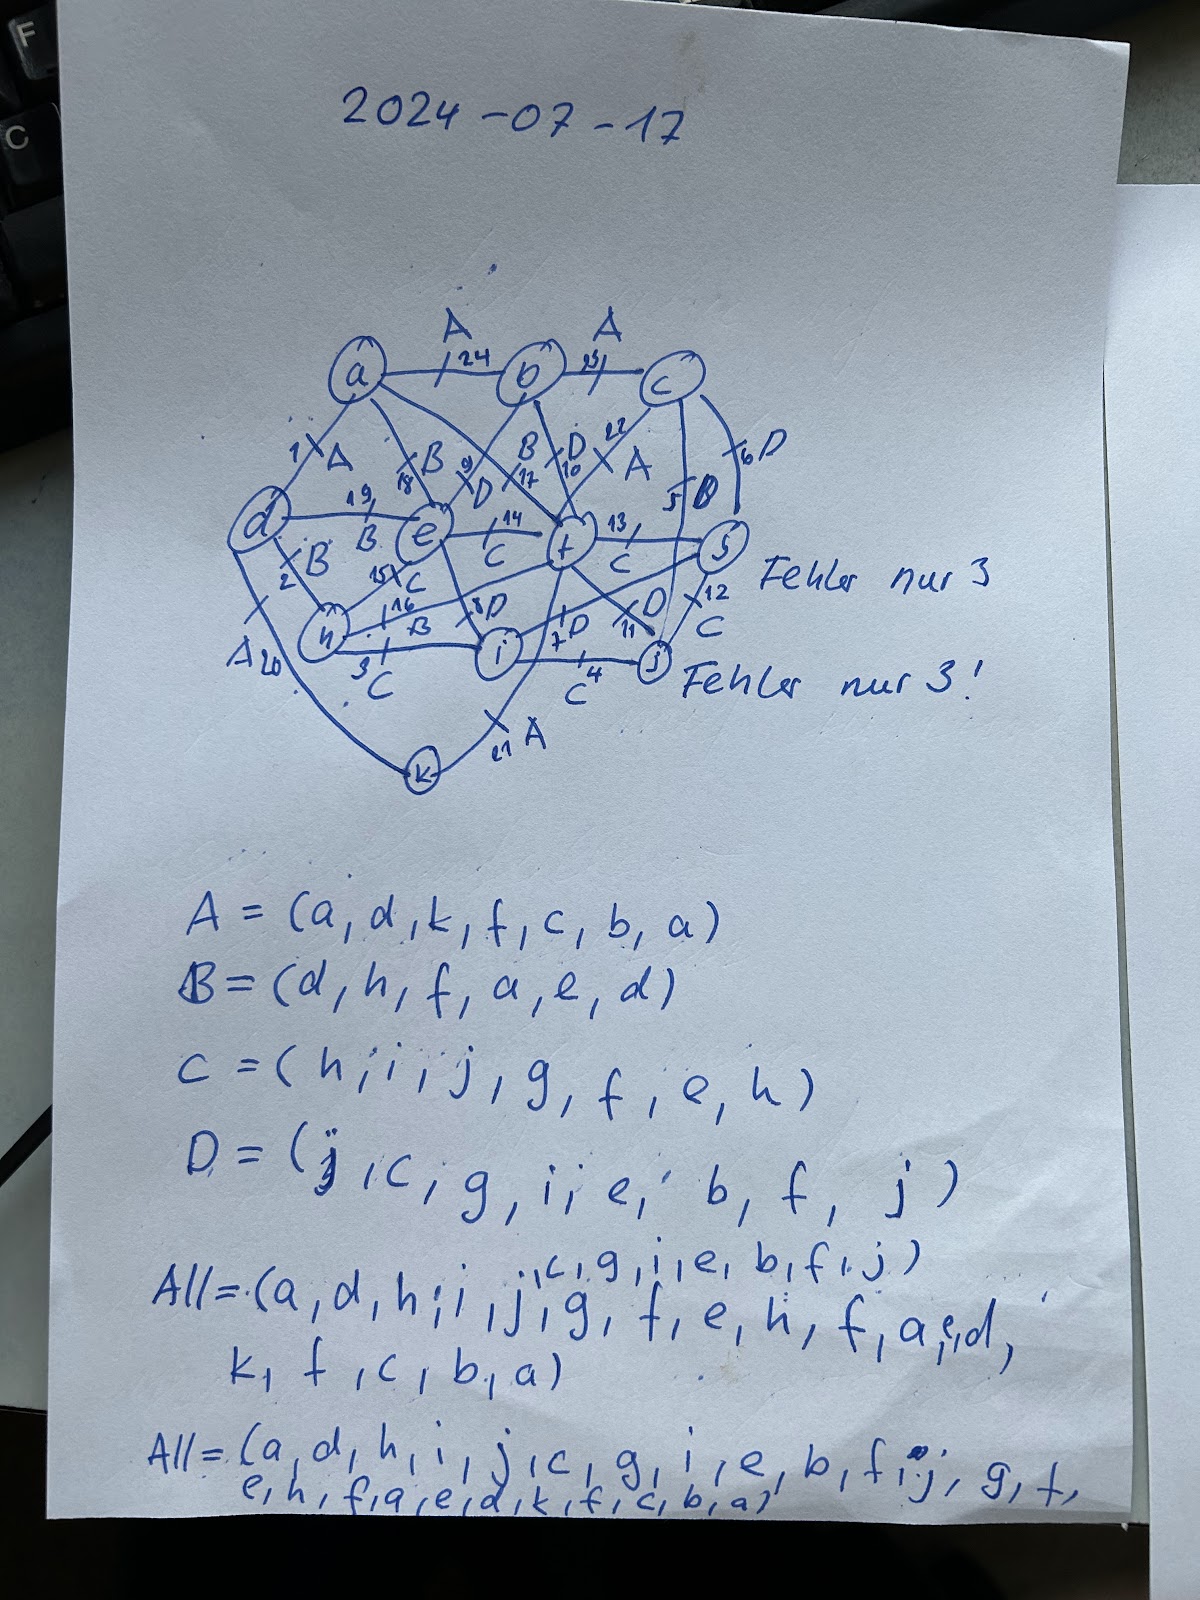 F
C
2024-07-17
A A
a 24 b 23 c
1 A 18 B 9 D B 17 D 10 22 A 5 B 6 D
d 19 B e 14 C f 13 C g
Fehler nur 3
2 B 15 C 16 B 8 D 7 D 11 D 12 C
h 3 C i C 4 j
Fehler nur 3!
A 20 21 A
k
A = (a, d, k, f, c, b, a)
B = (d, h, f, a, e, d)
C = (h, i, j, g, f, e, h)
D = (j, c, g, i, e, b, f, j)
,c,g,i,e,b,f,j)
All = (a, d, h, i, j, g, f, e, h, f, a, e, d,
k, f, c, b, a)
All = (a, d, h, i, j, c, g, i, e, b, f, j, g, f,
e, h, f, a, e, d, k, f, c, b, a)